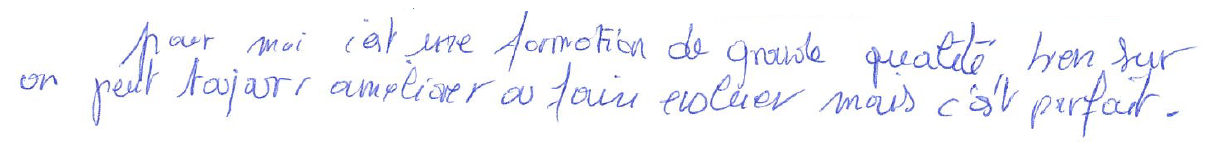 pour moi c'est une formation de grande qualité, bien sur
on peut toujours améliorer ou faire evoluer mais c'est parfait.